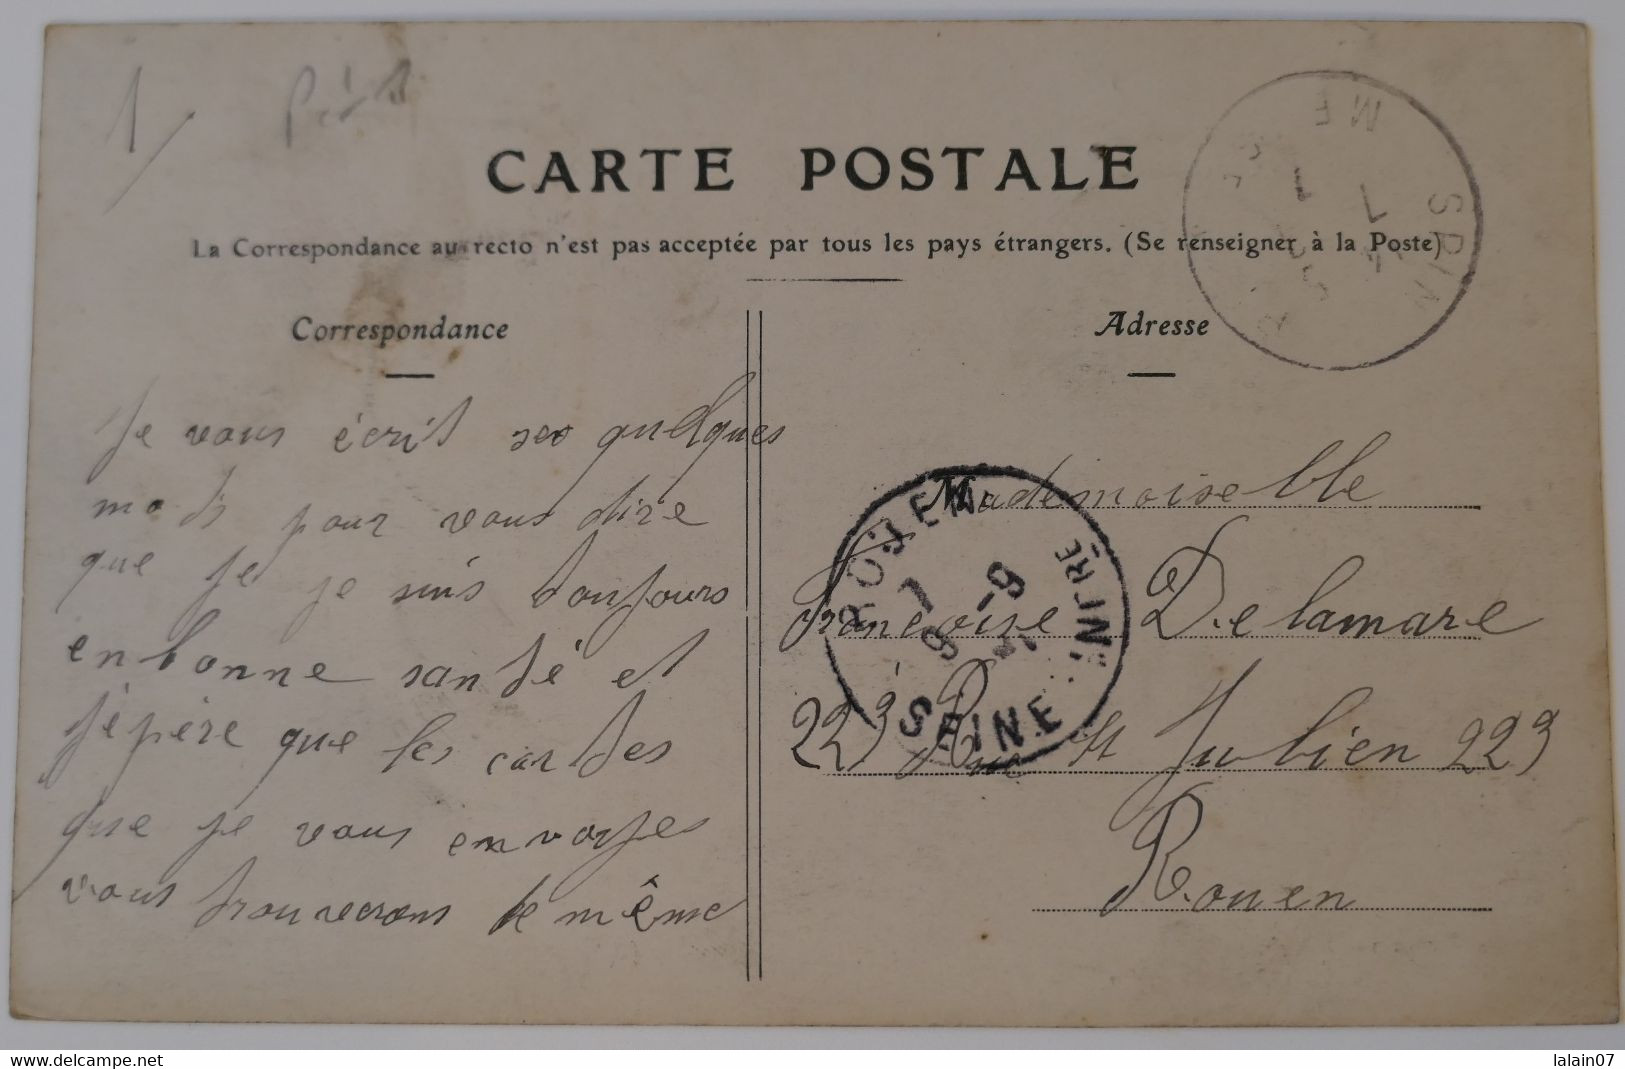 1
CARTE POSTALE
La Correspondance au recto n'est pas acceptée par tous les pays étrangers. (Se renseigner à la Poste)
Correspondance
Je vous écrit ses quelques
mots pour vous dire
que je je suis toujours
en bonne santé et
j'épère que les cartes
que je vous envoyes
vous trouverons de même
Adresse
Mademoiselle
Francoise Delamare
223 Rue St Julien 223
Rouen
ROUEN
7 -9
9
SEINE INFRE
delcampe.net
lalain07